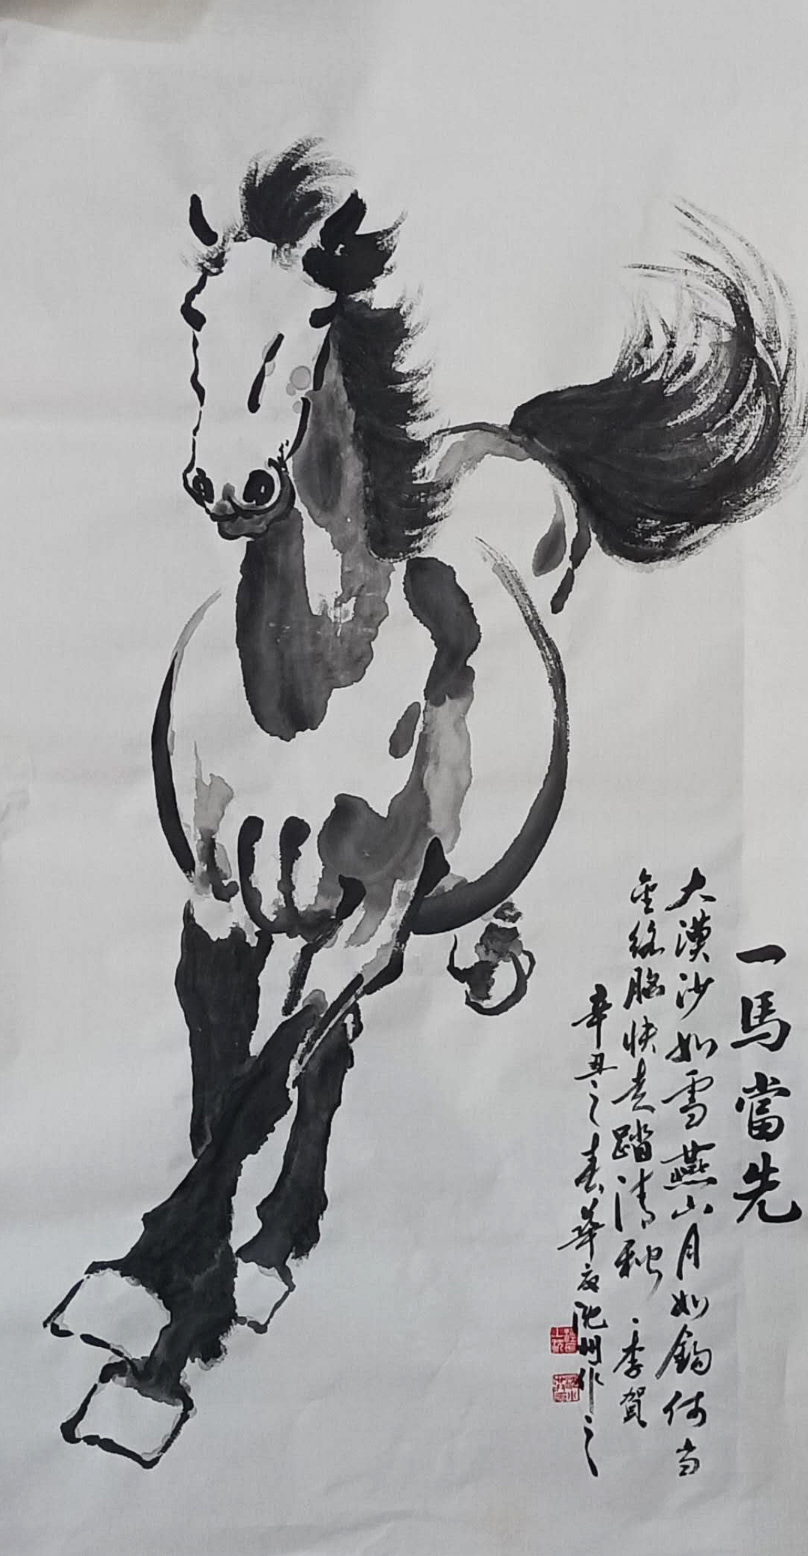 一馬當先
大漠沙如雪燕山月如鈎何当
金絡腦快走踏清秋·李賀
辛丑之春華池州作之